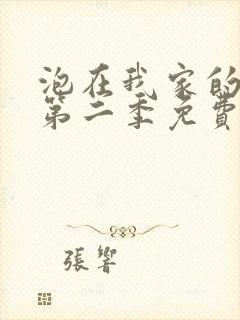 泡在我家的
第二季免費
張響